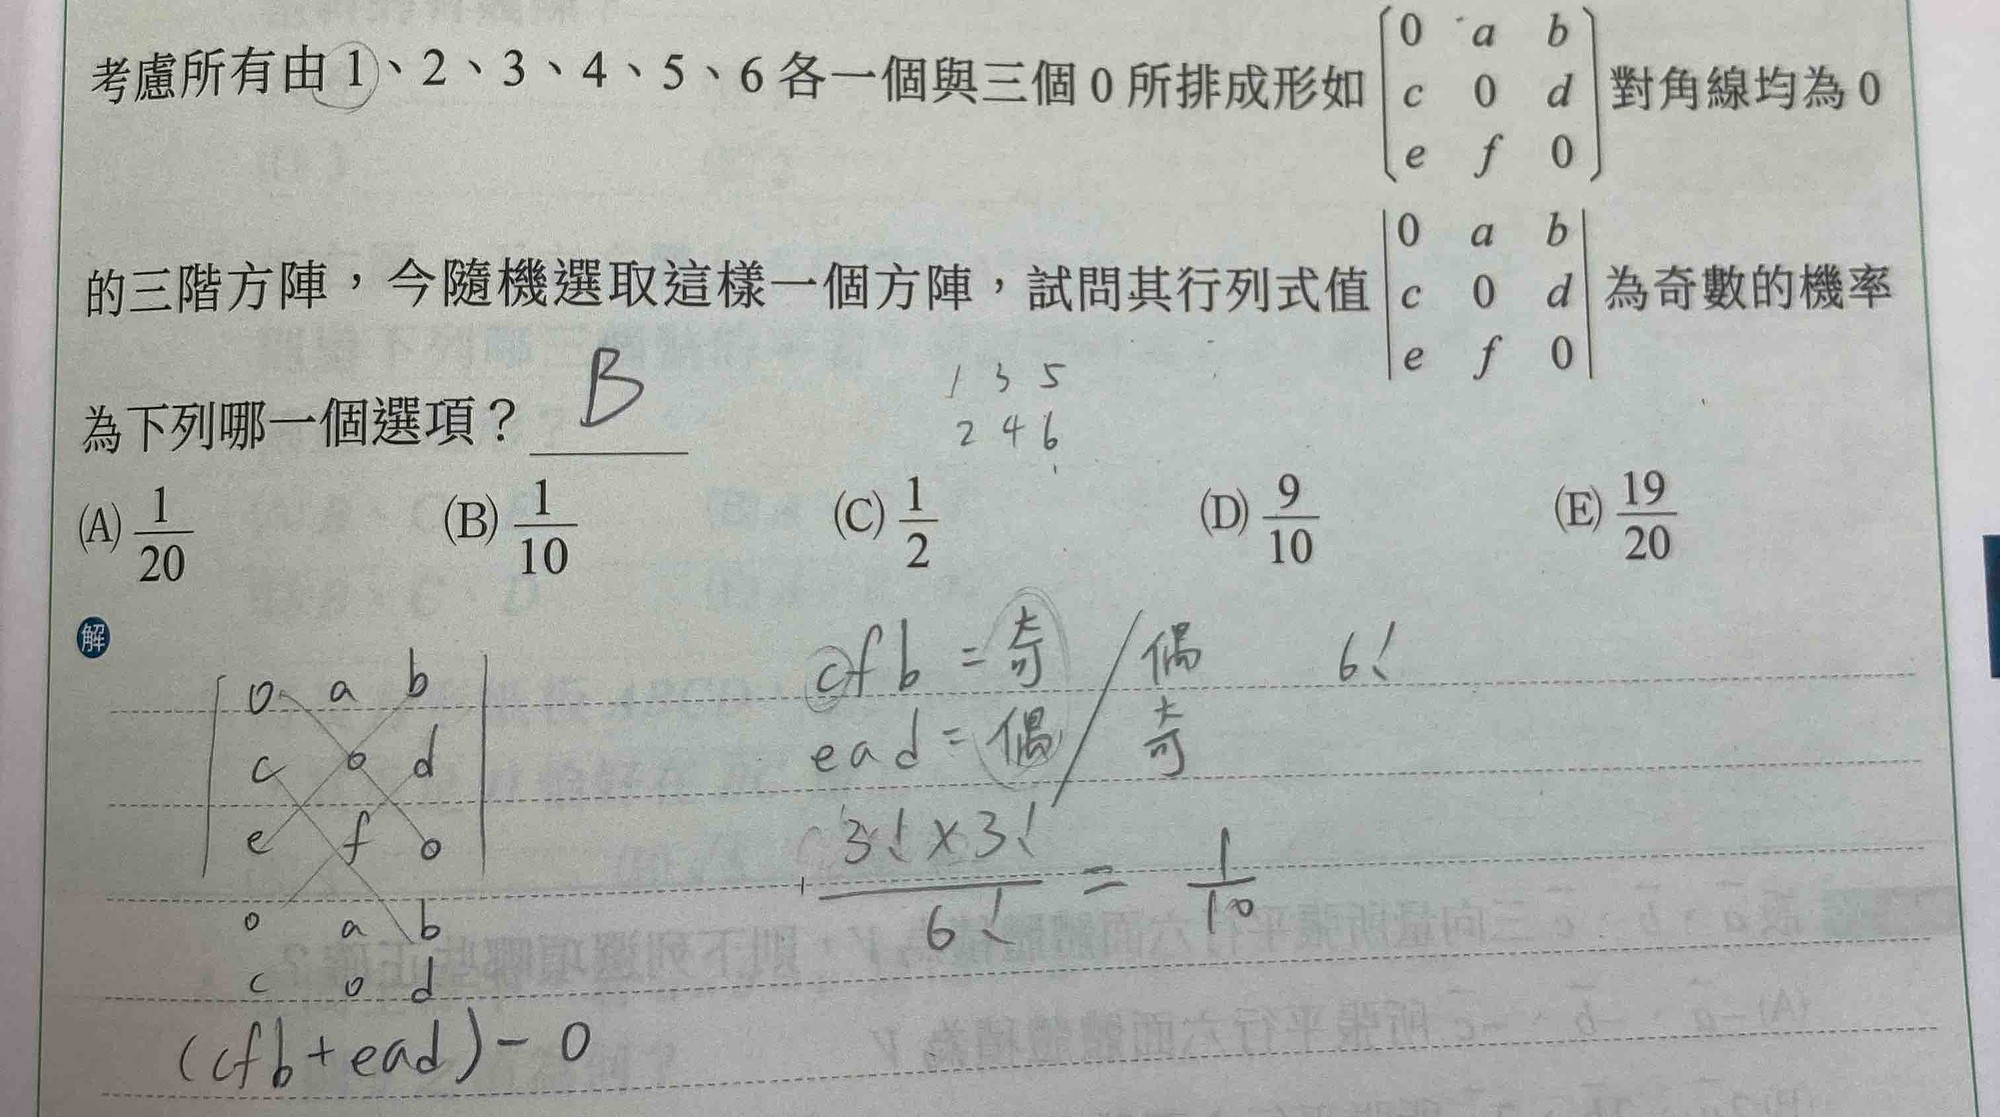 考慮所有由 1、2、3、4、5、6 各一個與三個 0 所排成形如 [0 a b; c 0 d; e f 0] 對角線均為 0
的三階方陣，今隨機選取這樣一個方陣，試問其行列式值 |0 a b; c 0 d; e f 0| 為奇數的機率
為下列哪一個選項？ B
1 3 5
2 4 6
(A) 1/20 (B) 1/10 (C) 1/2 (D) 9/10 (E) 19/20
解
0 a b
c 0 d
e f 0
0 a b
c 0 d
(cfb+ead)-0
cfb = 奇 / 偶 6!
ead = 偶 / 奇
3! × 3! / 6! = 1/10